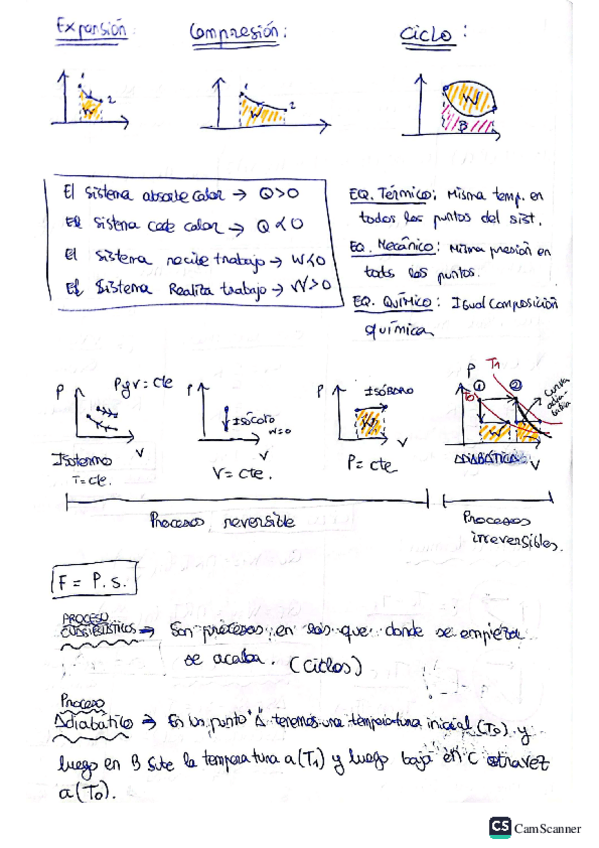 Expansión: Compresión: Ciclo:
1 2 W
1 2 W
W B
El sistema absorbe calor → Q>0
El sistema cede calor → Q<0
El sistema recibe trabajo → W<0
El sistema Realiza trabajo → W>0
EQ. Térmico: Misma temp. en
todos los puntos del sist.
EQ. Mecánico: Misma presión en
todos los puntos.
EQ. QUÍMICO: Igual composición
química
P V
Isotermo
T=cte.
P V
ISÓCORO
W=0
V=cte.
P V
ISÓBARO
W
P=cte
P V
T1
T0
1 2
W
curva
ADIABÁTICAS
Procesos reversible
Procesos
irreversibles.
F = P.s.
PROCESO
→ Son procesos en los que donde se empieza
se acaba. (ciclos)
Proceso
Adiabático → En un punto A tenemos una temperatura inicial (T0) y
luego en B sube la temperatura a (T1) y luego baja en C otravez
a (T0).
CS CamScanner